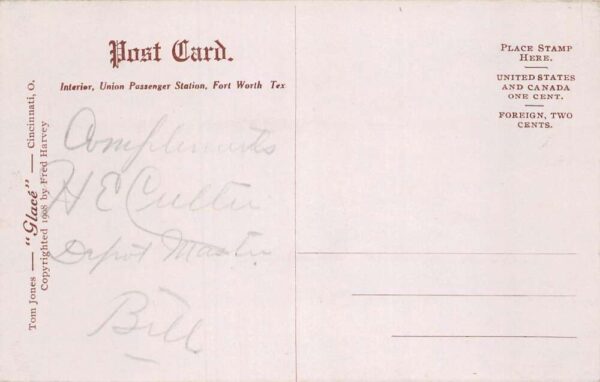 Post Card.
Interior, Union Passenger Station, Fort Worth Tex
Tom Jones — "Glacé" — Cincinnati, O.
Copyrighted 1908 by Fred Harvey
Compliments
H E Culter
Depot Master
Bill
PLACE STAMP
HERE.
UNITED STATES
AND CANADA
ONE CENT.
FOREIGN, TWO
CENTS.